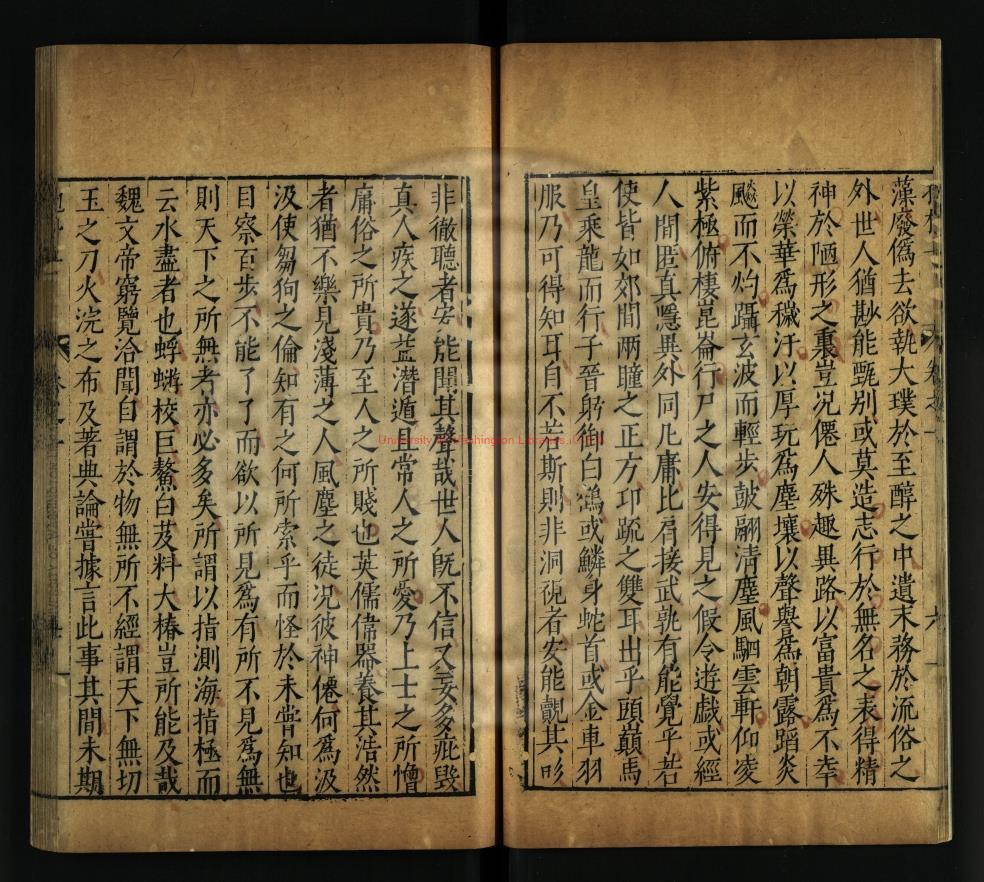 藻廢僞去欲執大璞於至醇之中遺末務於流俗之
外世人猶尠能甄别或莫造志行於無名之表得精
神於陋形之裏豈况僊人殊趣異路以富貴爲不幸
以榮華爲穢汙以厚玩爲塵壤以聲譽爲朝露蹈炎
飈而不灼躡玄波而輕步鼓翮清塵風駟雲軒仰凌
紫極俯棲崑崙行尸之人安得見之假令遊戯或經
人間匿真隱異外同凡庸比肩接武孰有能覺乎若
使皆如郊間兩瞳之正方卭疏之雙耳出乎頭巔馬
皇乘龍而行子晉躬御白鶴或鱗身蛇首或金車羽
服乃可得知耳自不若斯則非洞視者安能覿其形
非徹聽者安能聞其聲哉世人旣不信又妄多疵毁
真人疾之遂益潛遁且常人之所愛乃上士之所憎
庸俗之所貴乃至人之所賤也英儒偉器養其浩然
者猶不樂見淺薄之人風塵之徒况彼神僊何爲汲
汲使芻狗之倫知有之何所索乎而怪於未嘗知也
目察百步不能了了而欲以所見爲有所不見爲無
則天下之所無者亦必多矣所謂以指測海指極而
云水盡者也蜉蝣校巨鰲白芨料大椿豈所能及哉
魏文帝窮覽洽聞自謂於物無所不經謂天下無切
玉之刀火浣之布及著典論嘗據言此事其間未期
University of Washington Libraries